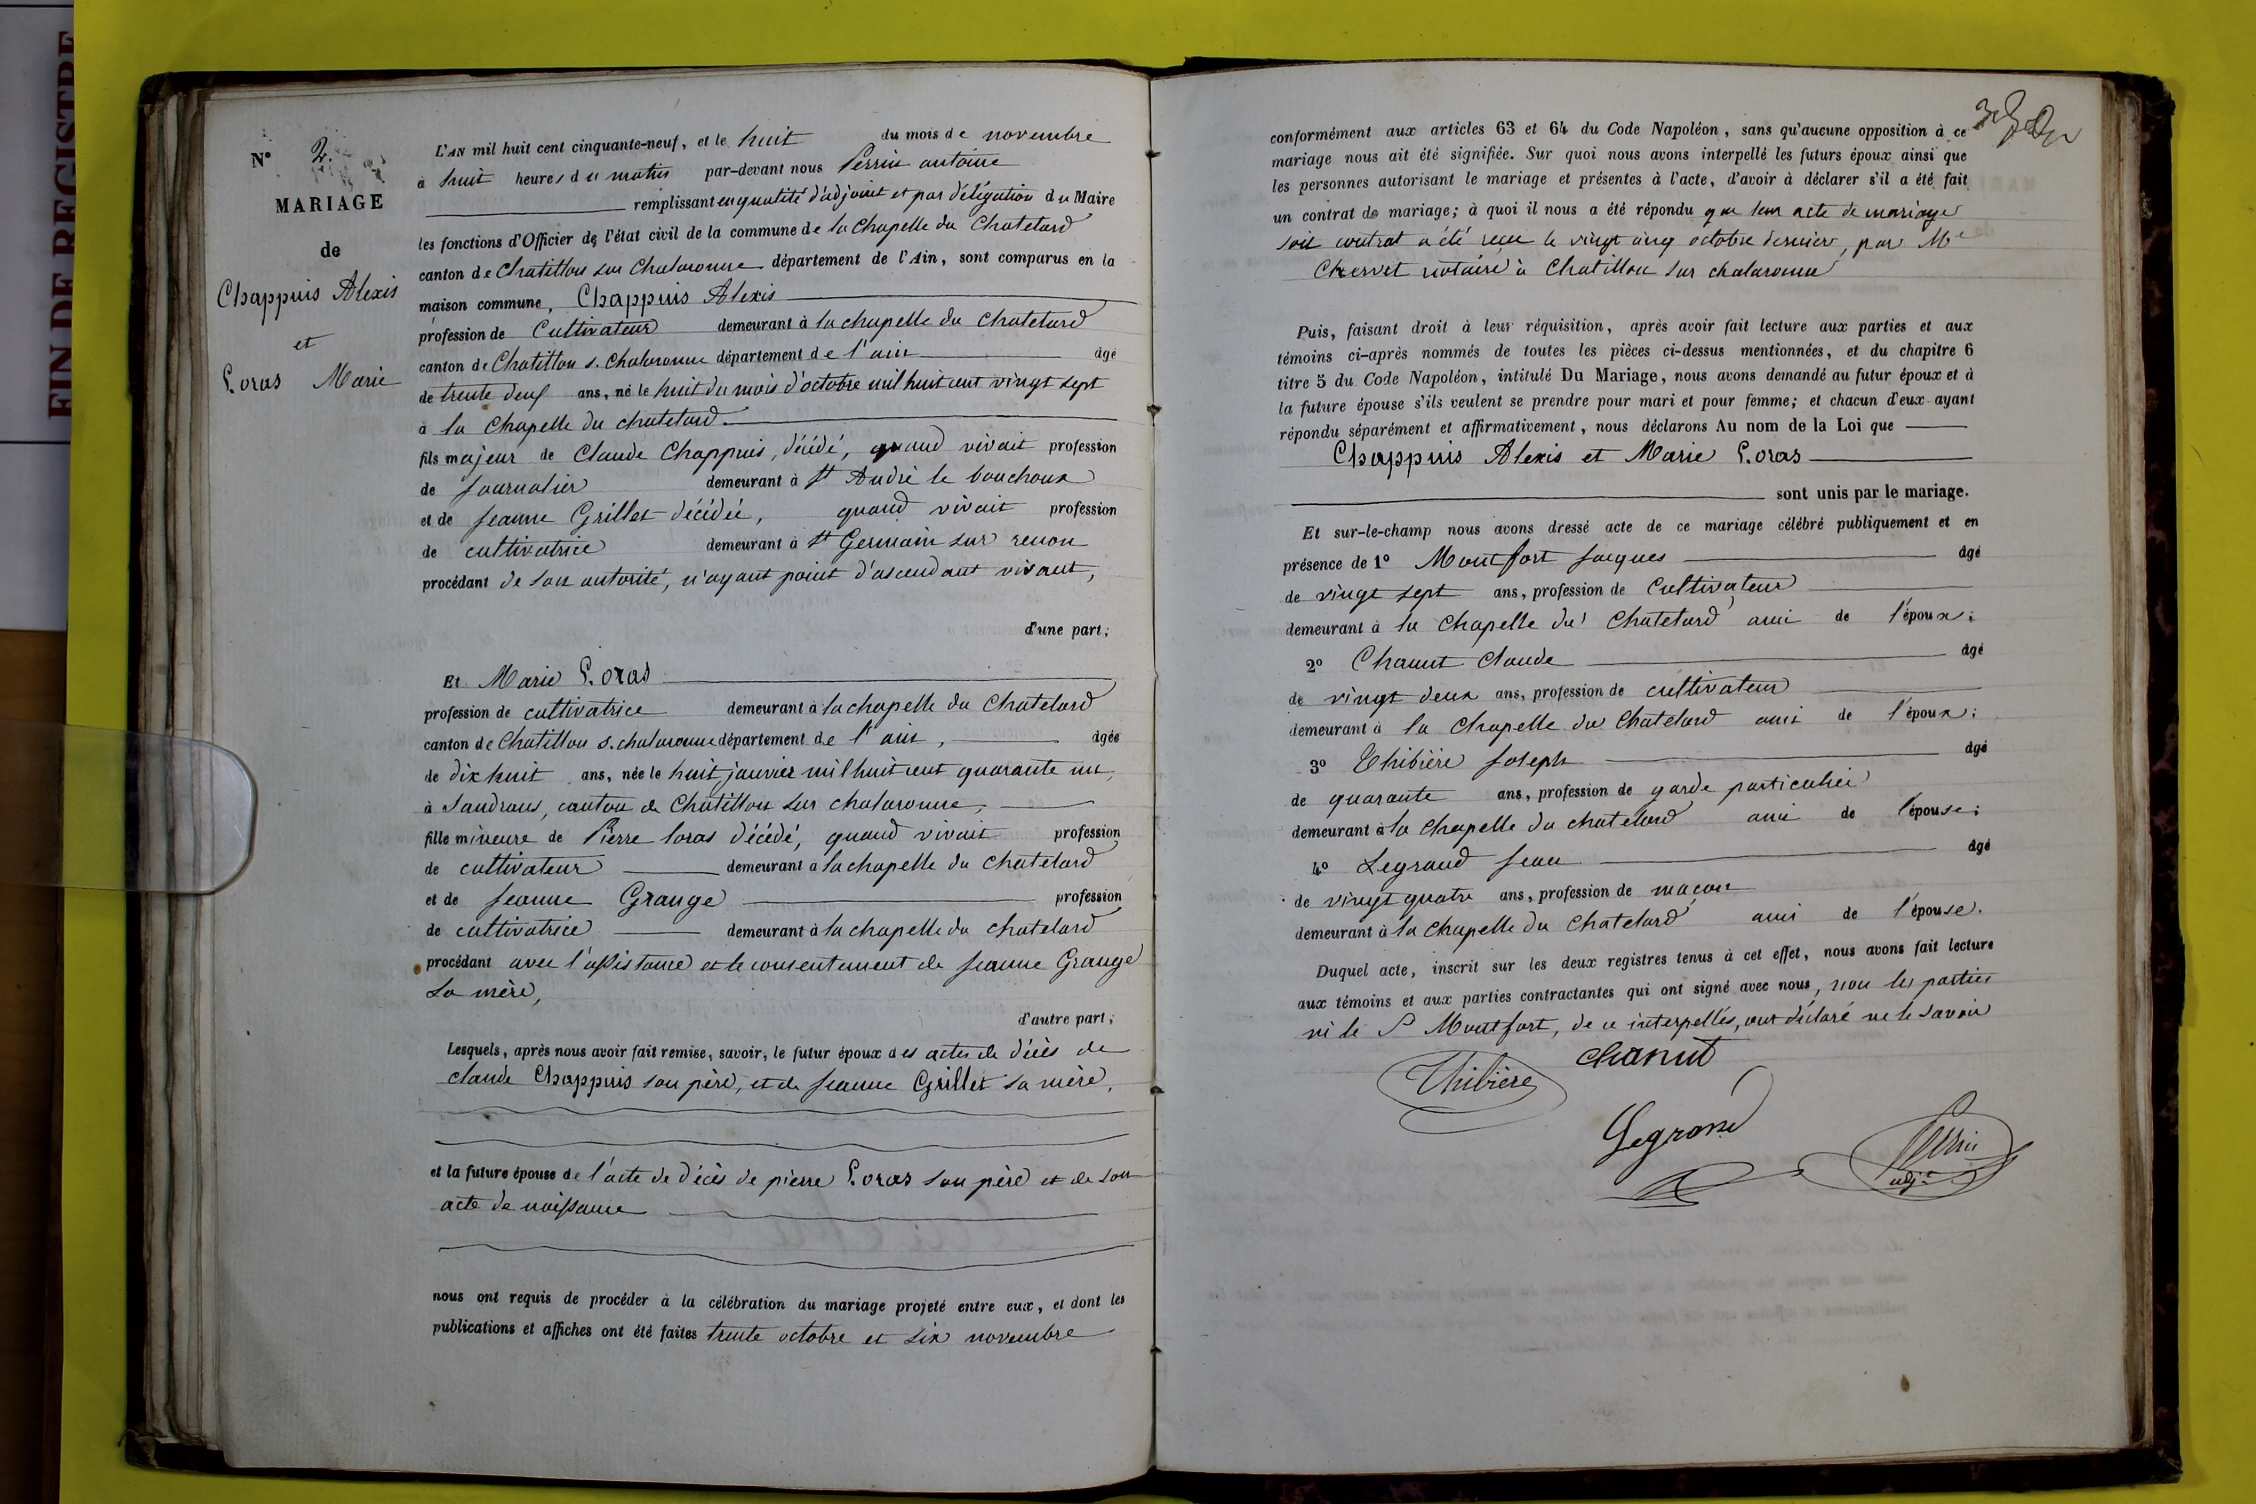 FIN DE REGISTRE
N° 2.
MARIAGE
de
Chappuis Alexis
et
Loras Marie
L'AN mil huit cent cinquante-neuf, et le huit du mois de novembre
à huit heures du matin par-devant nous Perrin antoine
remplissant en qualité d'adjoint et par délégation du Maire
les fonctions d'Officier de l'état civil de la commune de la Chapelle du Chatelard
canton de Chatillon sur Chalaronne département de l'Ain, sont comparus en la
maison commune, Chappuis Alexis
profession de Cultivateur demeurant à la chapelle du Chatelard
canton de Chatillon s. Chalaronne département de l'ain âgé
de trente deux ans, né le huit du mois d'octobre mil huit cent vingt sept
à la Chapelle du chatelard
fils majeur de Claude Chappuis, décédé, quand vivait profession
de journalier demeurant à St André le bouchoux
et de jeanne Grillet décédée, quand vivait profession
de cultivatrice demeurant à St Germain sur renon
procédant de son autorité, n'ayant point d'ascendant vivant,
d'une part;
Et Marie Loras
profession de cultivatrice demeurant à la chapelle du Chatelard
canton de Chatillon s. chalaronne département de l'ain, âgée
de dix huit ans, née le huit janvier mil huit cent quarante un,
à Sandrans, canton de Chatillon sur chalaronne,
fille mineure de Pierre loras décédé, quand vivait profession
de cultivateur demeurant à la chapelle du chatelard
et de jeanne Grange profession
de cultivatrice demeurant à la chapelle du chatelard
procédant avec l'assistance et le consentement de jeanne Grange
sa mère,
d'autre part;
Lesquels, après nous avoir fait remise, savoir, le futur époux des actes de décès de
claude Chappuis son père, et de jeanne Grillet sa mère,
et la future épouse de l'acte de décès de pierre Loras son père et de son
acte de naissance
nous ont requis de procéder à la célébration du mariage projeté entre eux, et dont les
publications et affiches ont été faites trente octobre et six novembre
conformément aux articles 63 et 64 du Code Napoléon, sans qu'aucune opposition à ce
mariage nous ait été signifiée. Sur quoi nous avons interpellé les futurs époux ainsi que
les personnes autorisant le mariage et présentes à l'acte, d'avoir à déclarer s'il a été fait
un contrat de mariage; à quoi il nous a été répondu que leur acte de mariage
soit contrat a été reçu le vingt cinq octobre dernier, par Me
Chervet notaire à Chatillon sur chalaronne
Puis, faisant droit à leur réquisition, après avoir fait lecture aux parties et aux
témoins ci-après nommés de toutes les pièces ci-dessus mentionnées, et du chapitre 6
titre 5 du Code Napoléon, intitulé Du Mariage, nous avons demandé au futur époux et à
la future épouse s'ils veulent se prendre pour mari et pour femme; et chacun d'eux ayant
répondu séparément et affirmativement, nous déclarons Au nom de la Loi que
Chappuis Alexis et Marie Loras
sont unis par le mariage.
Et sur-le-champ nous avons dressé acte de ce mariage célébré publiquement et en
présence de 1° Montfort jacques âgé
de vingt sept ans, profession de Cultivateur
demeurant à la Chapelle du Chatelard ami de l'époux;
2° Chanut Claude âgé
de vingt deux ans, profession de cultivateur
demeurant à la Chapelle du Chatelard ami de l'époux;
3° Thibière joseph âgé
de quarante ans, profession de garde particulier
demeurant à la chapelle du chatelard ami de l'épouse;
4° Legrand jean âgé
de vingt quatre ans, profession de maçon
demeurant à la chapelle du Chatelard ami de l'épouse.
Duquel acte, inscrit sur les deux registres tenus à cet effet, nous avons fait lecture
aux témoins et aux parties contractantes qui ont signé avec nous, non les parties
ni le S Montfort, de ce interpellés, ont déclaré ne le savoir
chanut
Thibière
Legrand
Perrin
adjt